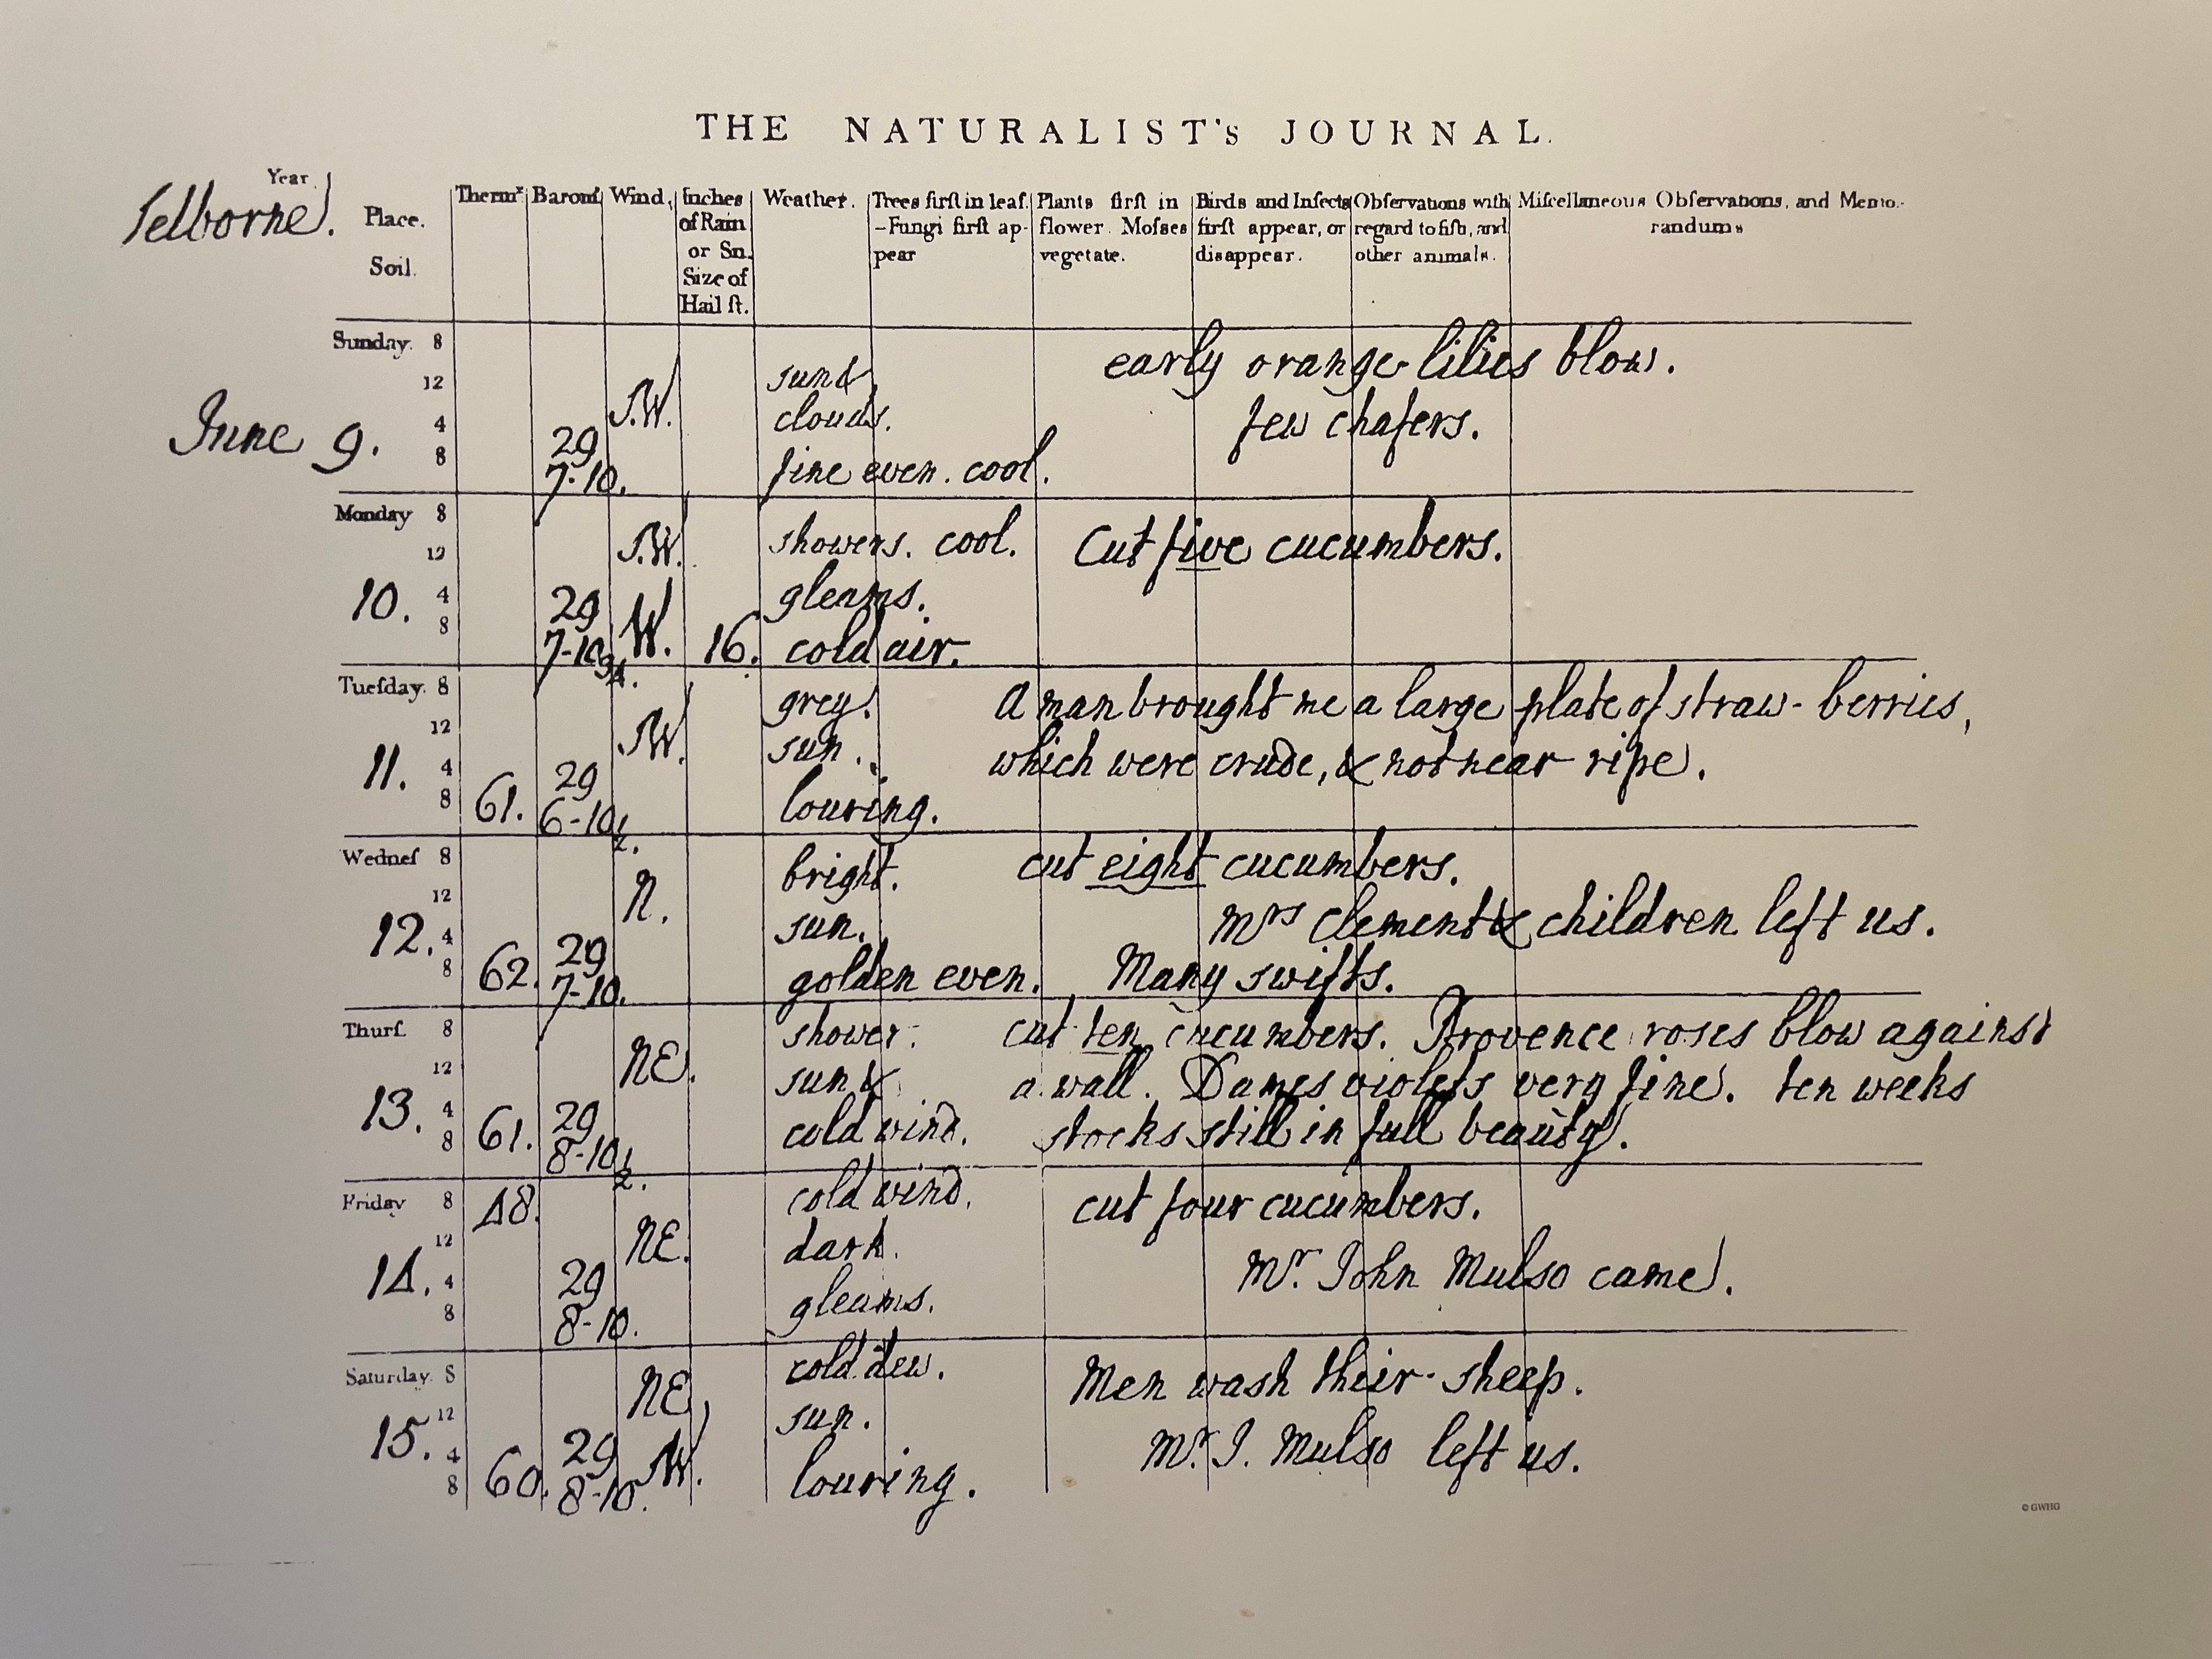 THE NATURALIST's JOURNAL.
Year
Selborne.
Place.
Soil.
Thermr
Baromr
Wind.
Inches
of Rain
or Sn.
Size of
Hail ſt.
Weather.
Trees firſt in leaf.
–Fungi firſt ap-
pear
Plants firſt in
flower. Moſses
vegetate.
Birds and Inſects
firſt appear, or
diſappear.
Obſervations with
regard to fiſh, and
other animals.
Miſcellaneous Obſervations, and Memo-
randums
Sunday. 8
12
4
8
June 9.
29
7-10.
S.W.
sun &
clouds.
fine even. cool.
early orange-lilies blow.
few chafers.
Monday 8
12
4
8
10.
29
7-10 3/4.
S.W.
W.
16.
showers. cool.
gleams.
cold air.
Cut five cucumbers.
Tueſday. 8
12
4
8
11.
61.
29
6-10 1/2.
SW.
grey.
sun.
louring.
A man brought me a large plate of straw-berries,
which were crude, & not near ripe.
Wedneſ 8
12
4
8
12.
62.
29
7-10.
N.
bright.
sun.
golden even.
cut eight cucumbers.
Mrs Clement & children left us.
Many swifts.
Thurſ. 8
12
4
8
13.
61.
29
8-10 1/2.
NE.
shower.
sun &
cold wind.
cut ten cucumbers. Provence roses blow against
a wall. Dames violets very fine. ten weeks
stocks still in full beauty.
Friday 8
12
4
8
14.
48.
29
8-10.
NE.
cold wind.
dark.
gleams.
cut four cucumbers.
Mr. John Mulso came.
Saturday. 8
12
4
8
15.
60.
29
8-10.
NE
SW.
cold dew.
sun.
louring.
Men wash their sheep.
Mr. J. Mulso left us.
© GWHG